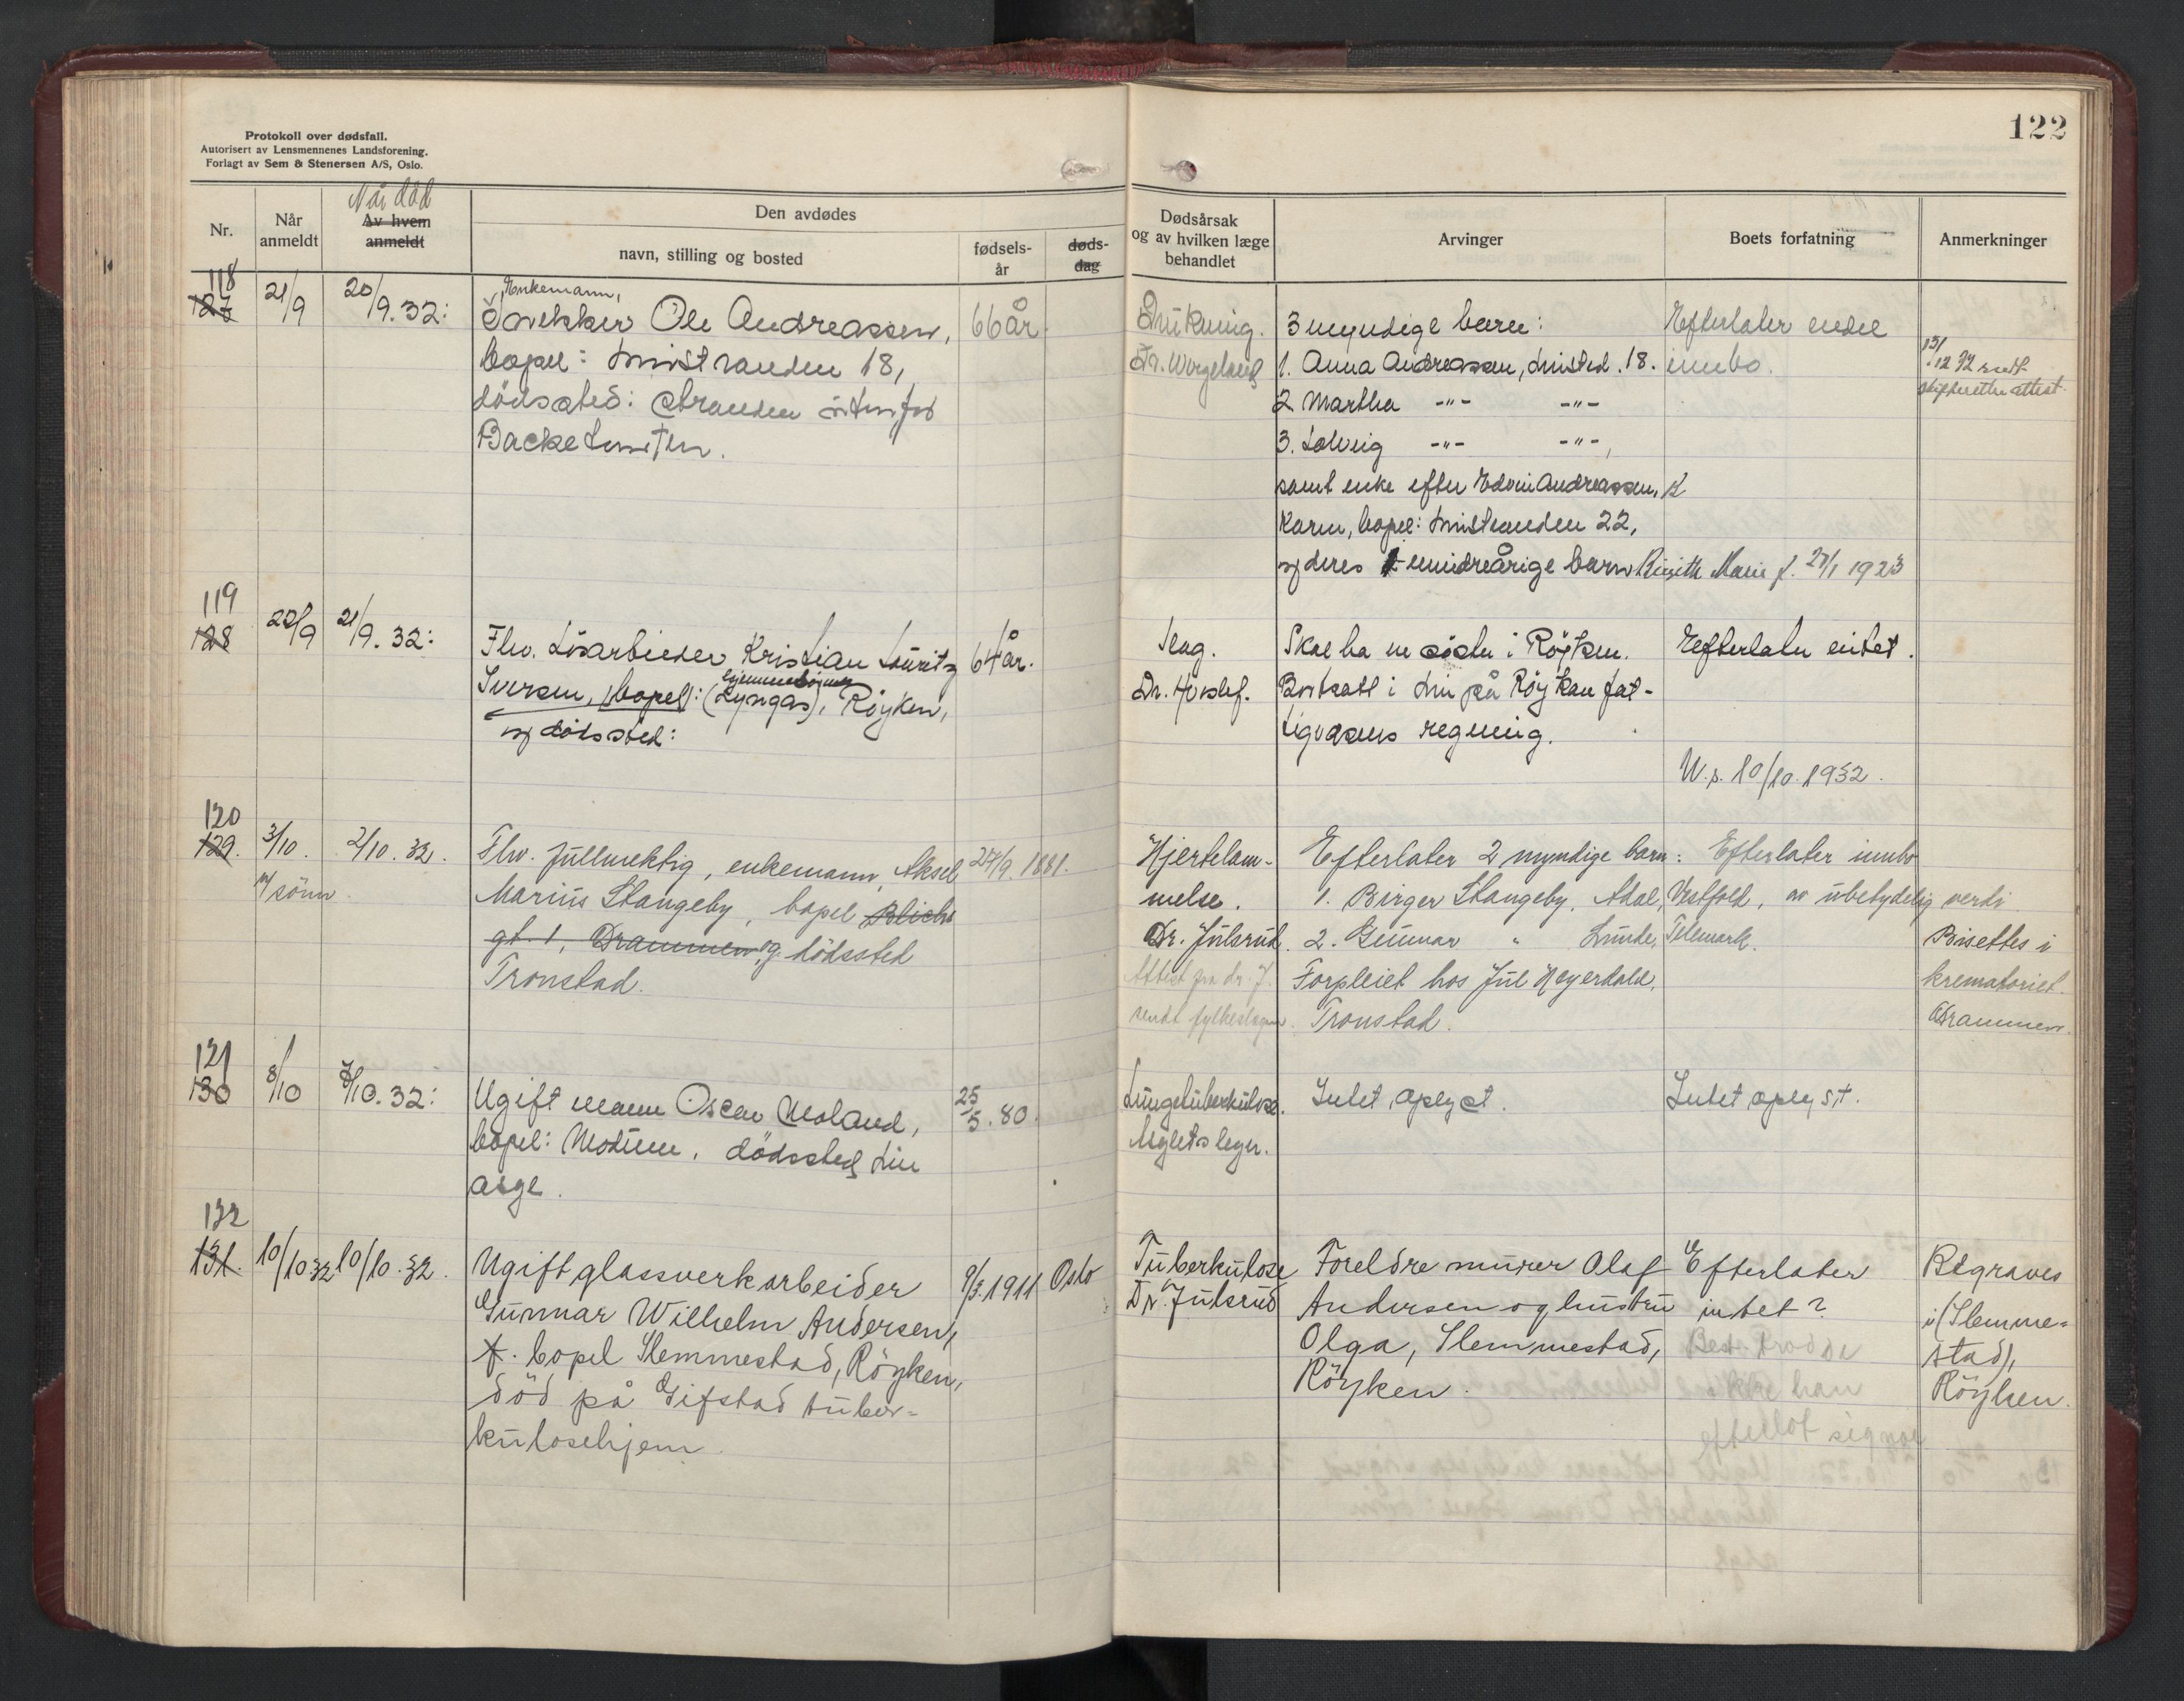 Protokoll over dødsfall.
Autorisert av Lensmennenes Landsforening.
Forlagt av Sem & Stenersen A/S, Oslo.
122
Nr.
Når anmeldt
Når død
Av hvem anmeldt
Den avdødes
navn, stilling og bosted
fødsels-
år
døds-
dag
Dødsårsak
og av hvilken læge
behandlet
Arvinger
Boets forfatning
Anmerkninger
118
127
21/9
20/9. 32:
Enkemann,
Ole Andreassen,
bopel: 18,
dödssted: Stranden
66 år
Drukning.
Dr. Wergeland
3 myndige barn:
1. Anna Andreassen, 18.
2. Martha -"- -"-
3. Solveig -"- -"-,
samt enke efter Edvin Andreassen,
Karen, bopel: 22,
og deres umidreårige barn Birgith Marie f. 27/1 1923
Efterlater endel
innbo.
13/12 32 sendt
skifteretten attest.
119
128
22/9
21/9. 32:
Fhv. Lösarbieder Kristian Lauritz
Iversen, bopel: (Lyngås), Röyken,
og dödssted:
64 år.
Slag.
Dr.
Skal ha en söster i Röyken.
Bortsatt i Lier på Röyken fat-
tigvesens regning.
Efterlater intet.
U.s. 10/10. 1932.
120
129.
3/10.
m/sönn.
2/10. 32.
Fhv. fullmektig, enkemann, Aksel
Marius Stangeby, bopel Blichs
gt. 1, Drammen og dödssted
Tronstad.
24/9. 1881.
Hjertelam-
melse.
Dr. Julsrud.
Attest fra dr. J.
sendt fylkeslegen.
Efterlater 2 myndige barn:
1. Birger Stangeby, Adal, Vestfold,
2. Gunnar " Lunde, Telemark.
Forpleiet hos Jul Heyerdahl,
Tronstad.
Efterlater innbo
av ubetydelig verdi
Bisettes i
krematoriet.
Drammen.
121
130
8/10
7/10. 32:
Ugift mann Oscar Moland,
bopel: Modum, dödssted Lier
asyl.
25/5. 80.
Lungetuberkulose.
Asylets leger.
Intet oplyst.
Intet oplyst.
122
131.
10/10 32
10/10. 32.
Ugift glassverkarbeider
Gunnar Wilhelm Andersen,
f. bopel Slemmestad, Röyken,
död på Gifstad tuber-
kulosehjem.
9/3. 1911
Oslo
Tuberkulose
Dr. Julsrud
Foreldre murer Olaf
Andersen og hustru
Olga, Slemmestad,
Röyken.
Efterlater
intet?
Best. trodde
ikke han
efterlot sig noe
Begraves
i (Slemme-
stad),
Röyken.